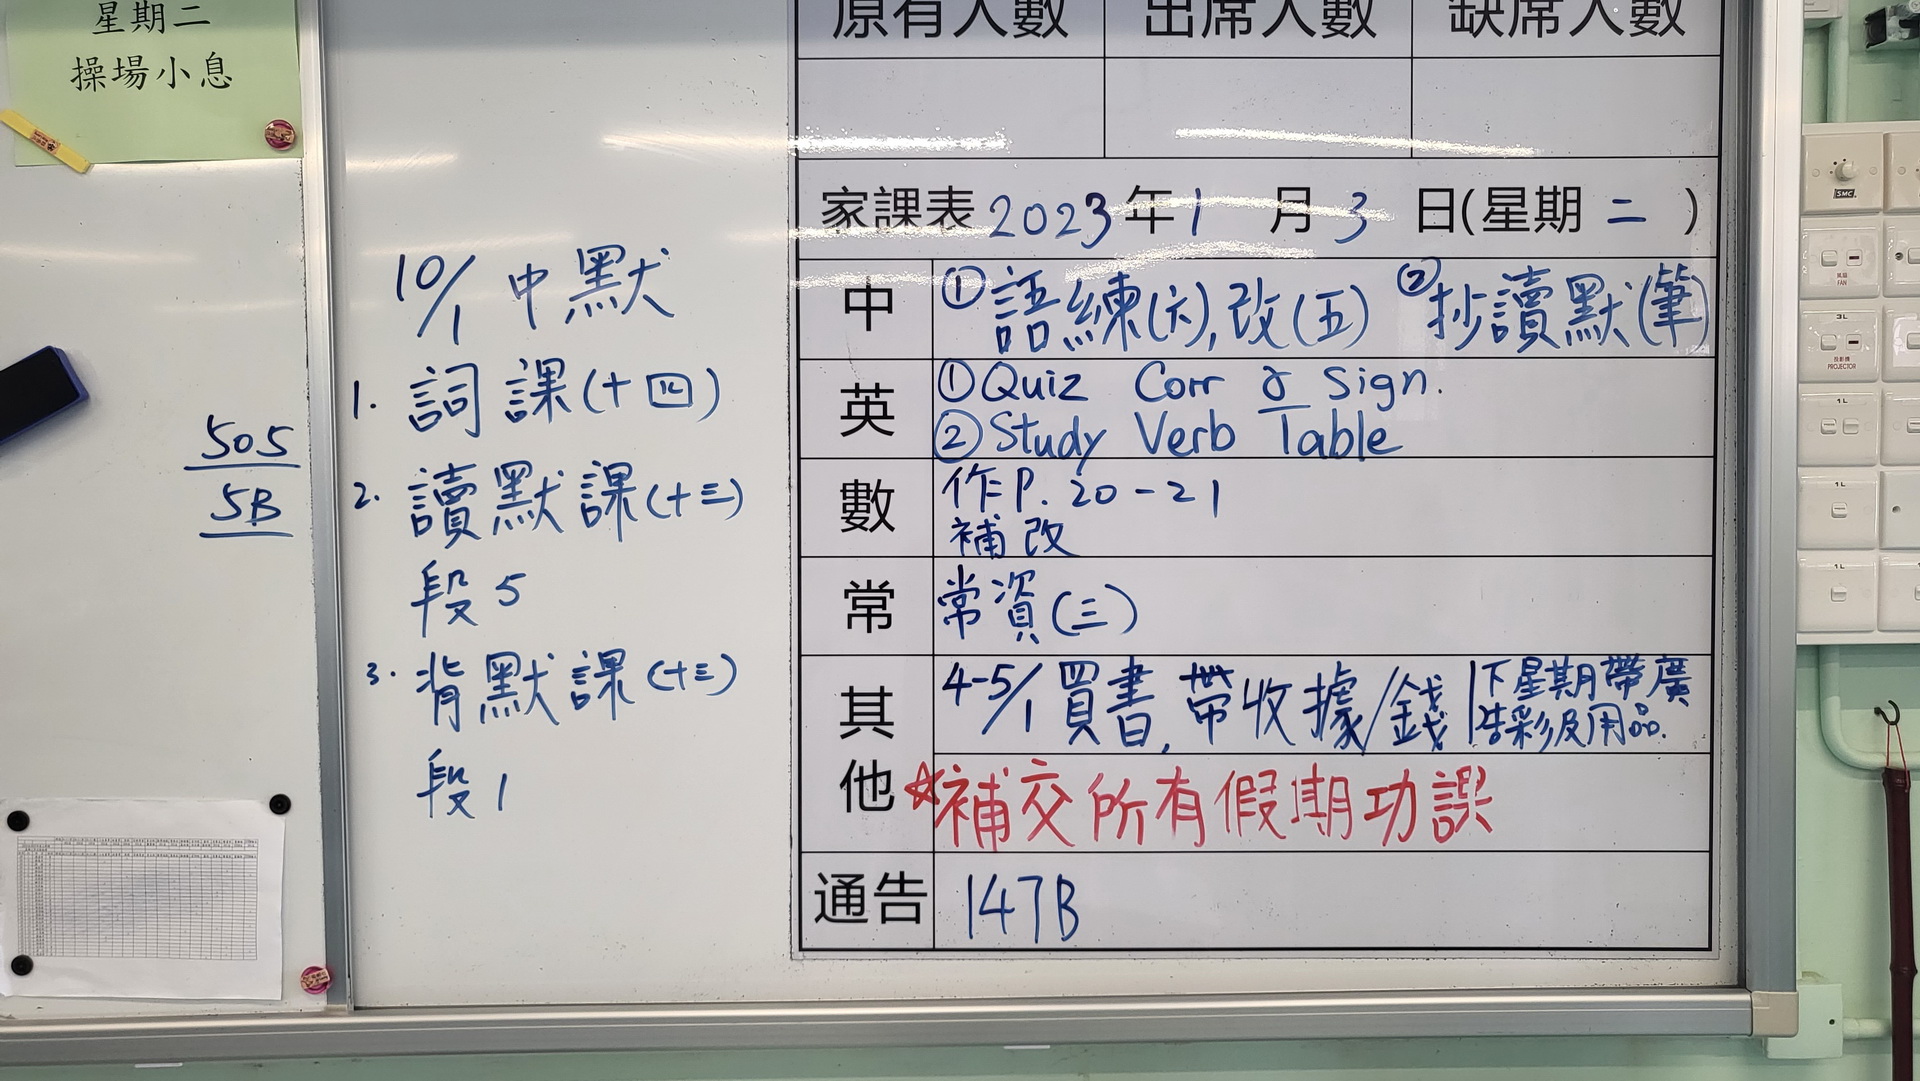 星期二
操場小息
505
5B
10/1 中默
1. 詞 課(十四)
2. 讀默課(十三)
段5
3. 背默課(十三)
段1
原有人數 出席人數 缺席人數
家課表 2023年1月3日(星期二)
中 ①語練(六),改(五) ②抄讀默(筆)
英 ①Quiz Corr & Sign.
②Study Verb Table
數 作P. 20-21
補改
常 常資(三)
其他 4-5/1 買書,帶收據/錢 下星期帶廣
告彩及用品.
☆補交所有假期功課
通告 147B
SMC
FAN
投影機
PROJECTOR
3L
1L
1L
1L